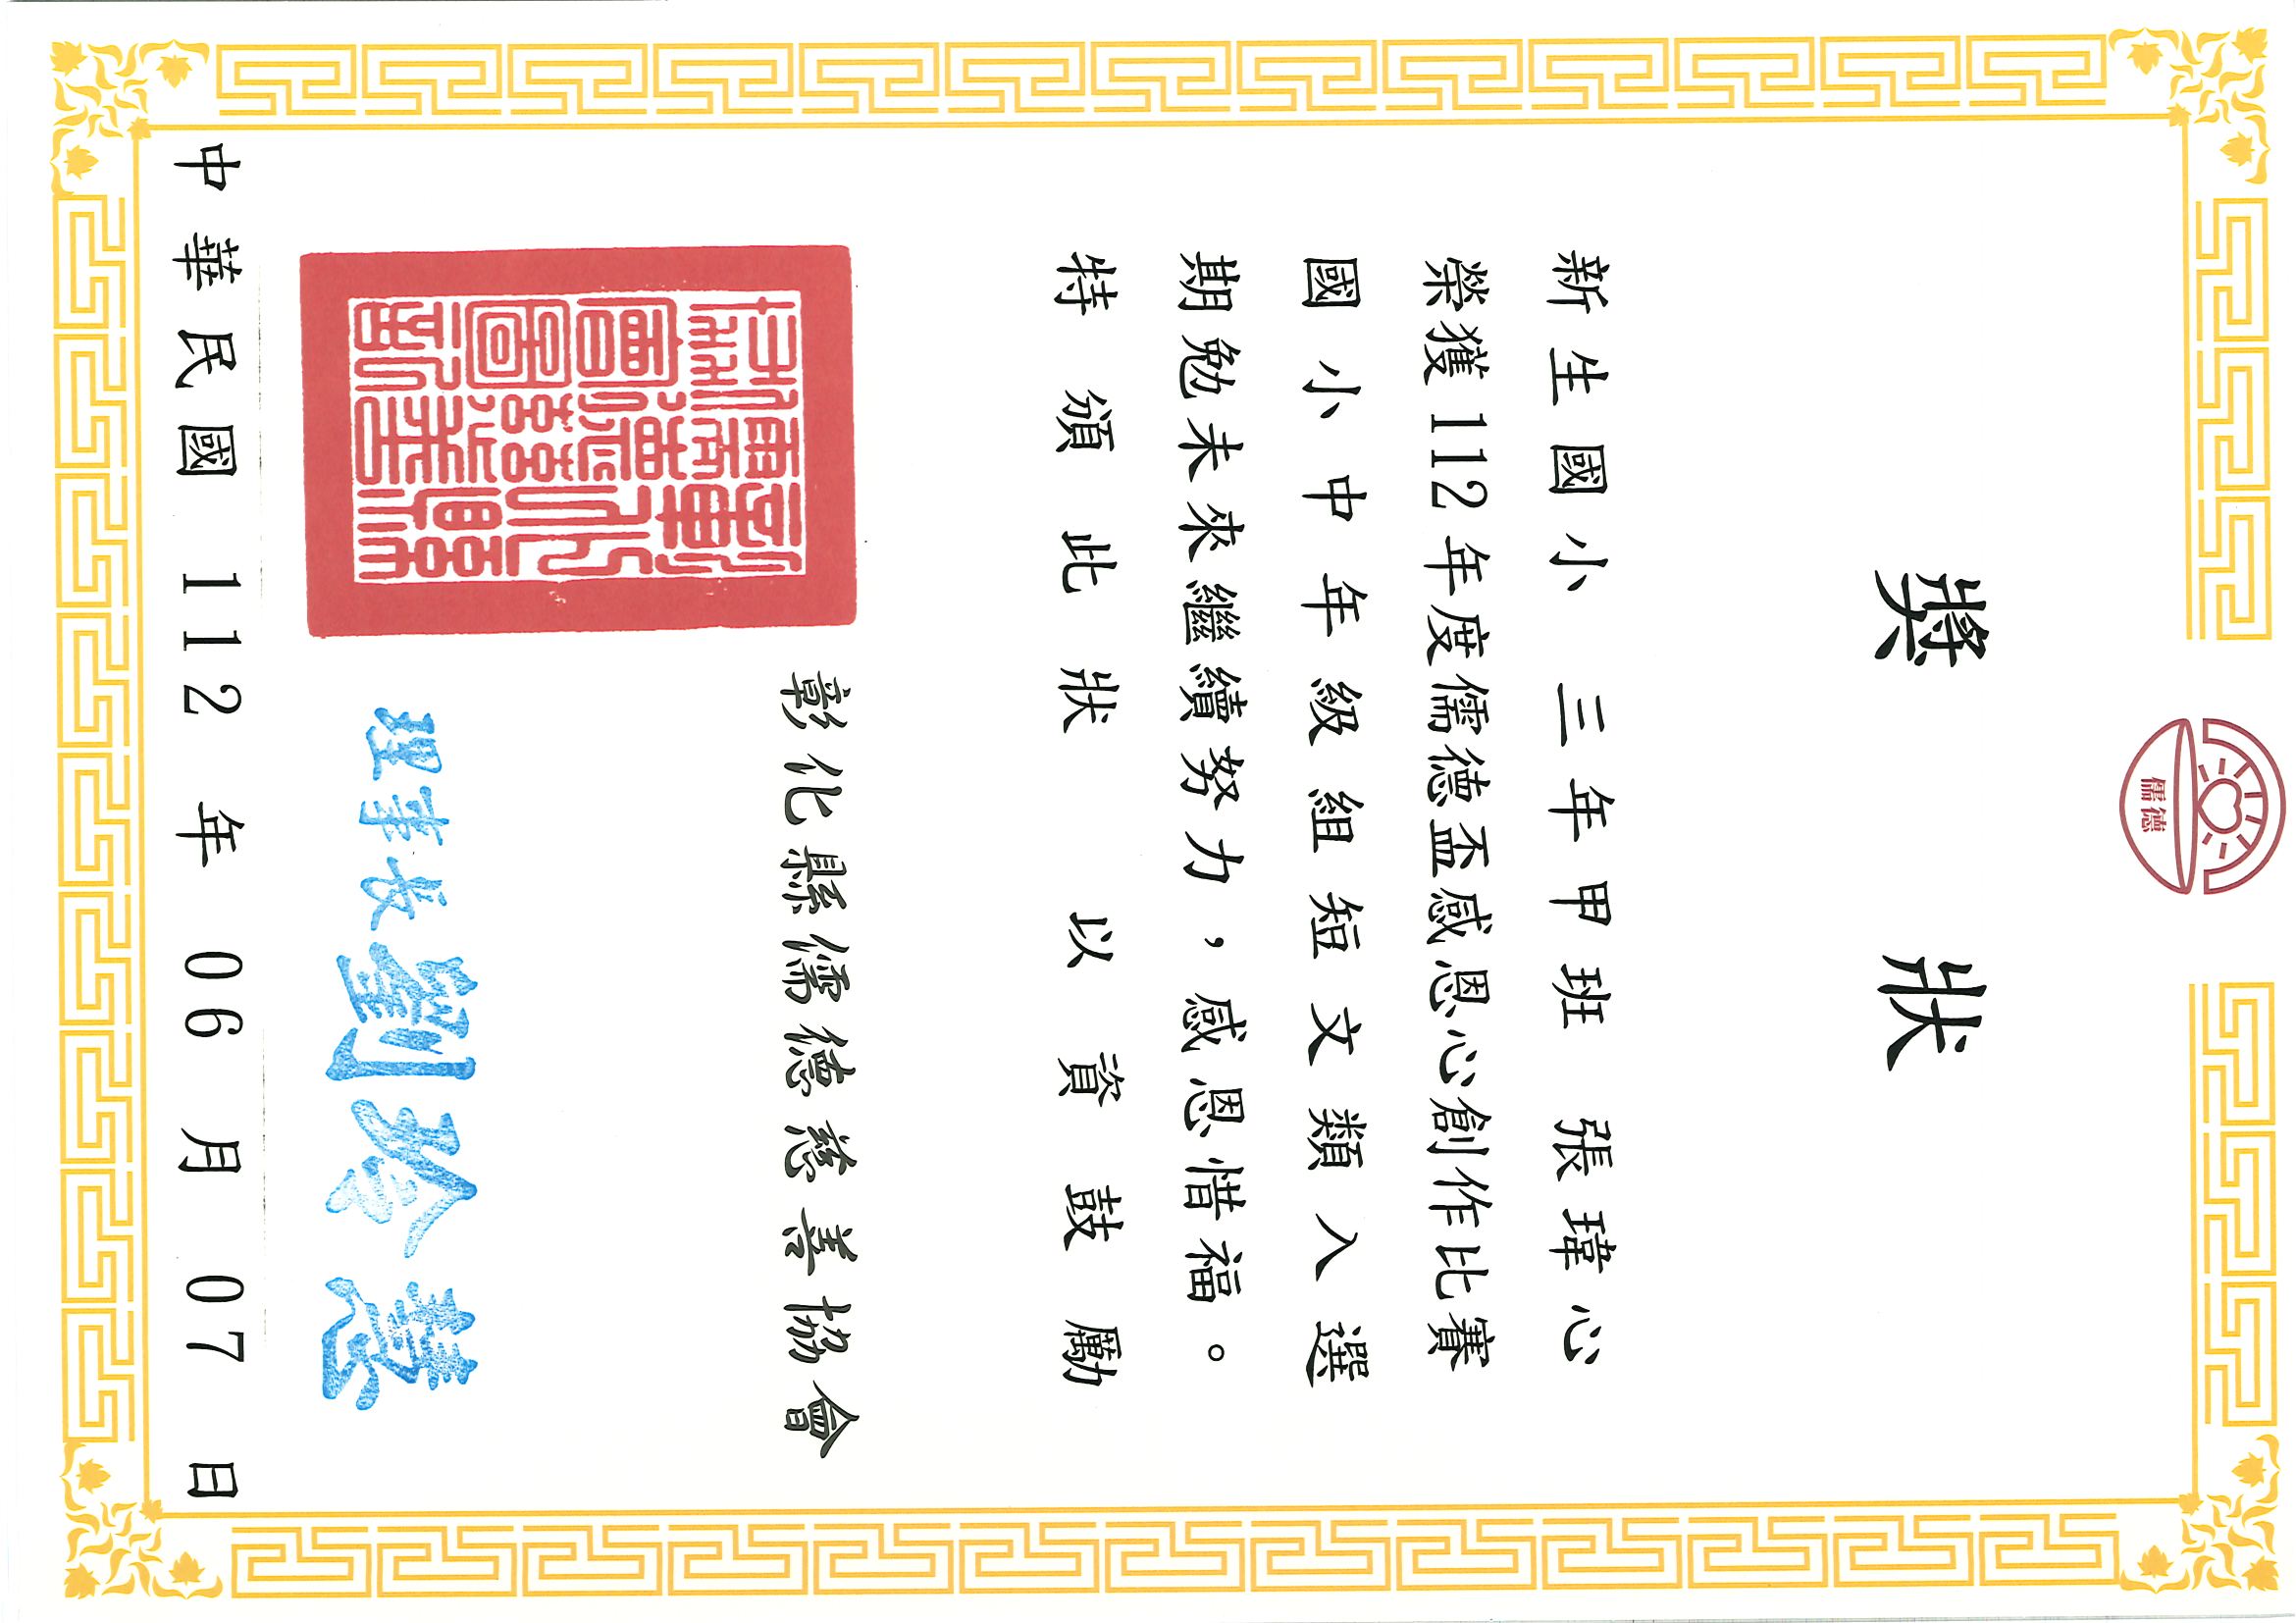 儒德
獎狀
新生國小 三年甲班 張瑋心
榮獲112年度儒德盃感恩心創作比賽
國小中年級組短文類入選
期勉未來繼續努力，感恩惜福。
特頒此狀 以資鼓勵
彰化縣儒德慈善協會
理事長
中華民國 112 年 06 月 07 日